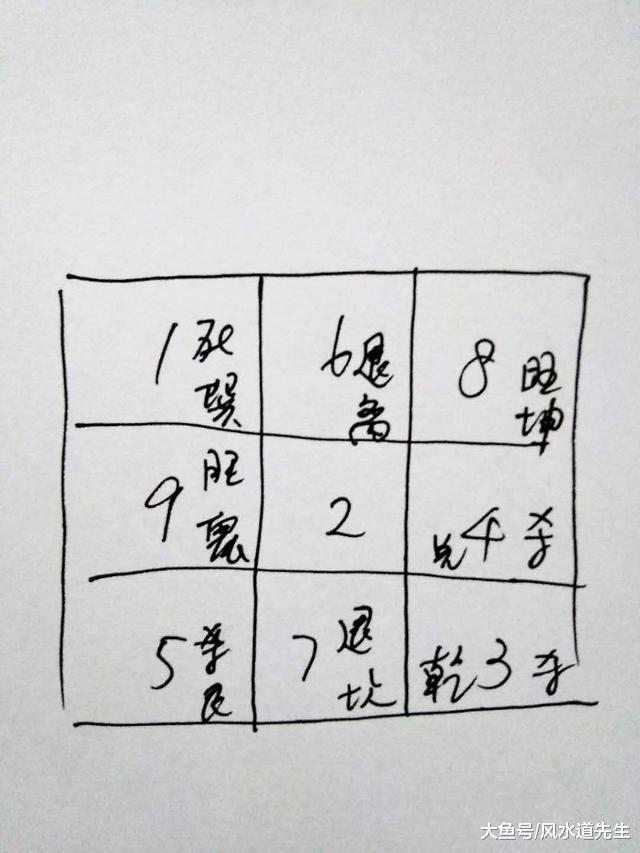 1死
巽
6退
离
8旺
坤
9旺
震
2
兑4杀
5杀
艮
7退
坎
乾3杀
大鱼号/风水道先生